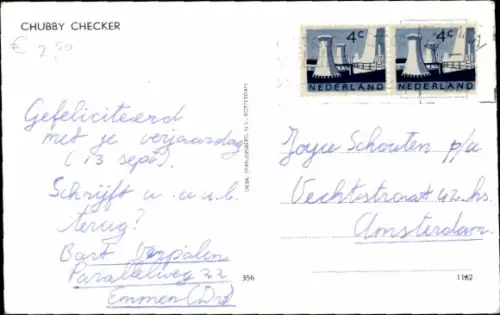 CHUBBY CHECKER
€ 2,50
Gefeliciteerd
met je verjaardag
(13 sept).
Schrijft u a.u.b.
terug?
Bart Verpalen
Parallelweg 22
Emmen (Dr)
356
4c
NEDERLAND
4c
NEDERLAND
Schouten p/a
Vechtstraat 42 hs
Amsterdam
1162